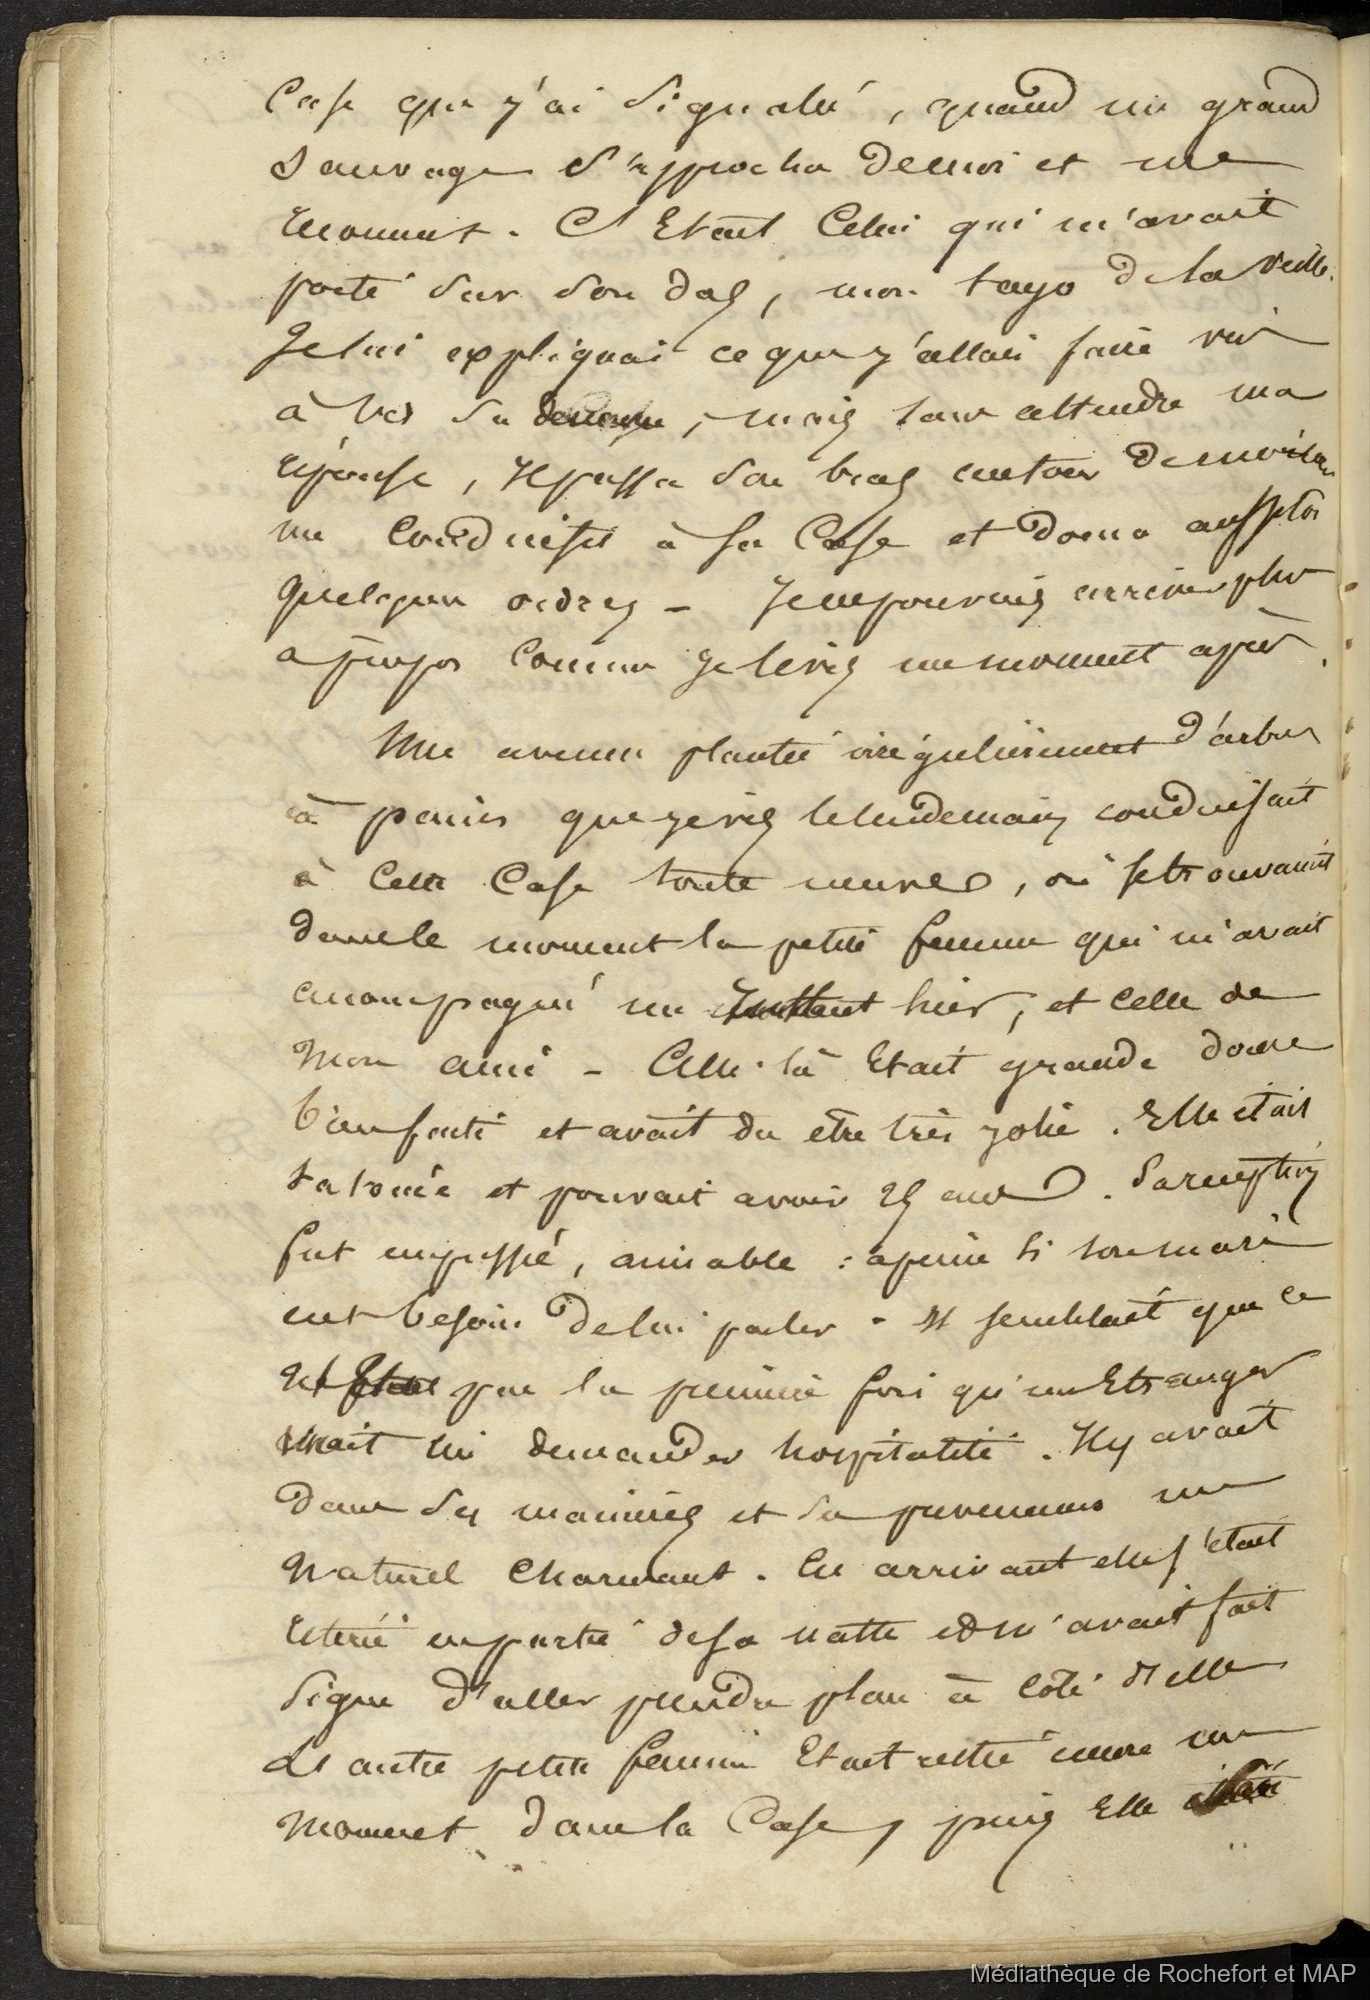 Case que j'ai signalée, quand un grand
Sauvage s'approcha de moi et me
reconnut. C'Etait Celui qui m'avait
porté sur son dos, mon tayo de la veille.
Je lui expliquai ce que j'allais faire vis
à vis sa demeure, mais sans attendre ma
réponse, Il passa son bras autour de moi
me Conduisit à sa Case et donna aussitôt
quelques ordres - Je ne pouvais arriver plus
apropos Comme Je le vis un moment après.
Une avenue plantée irrégulièrement d'arbres
à pains que je vis le lendemain conduisait
à Cette Case toute neuve, où se trouvaient
dans le moment la petite femme qui m'avait
accompagné un Instant hier, et Celle de
Mon ami - Celle-là Etait grande douce
bien faite et avait du être très jolie. Elle était
tatouée et pouvait avoir 25 ans. Sa réception
fut empressée, aimable : apeine si son mari
eut besoin de lui parler - Il semblait que ce
n'est pas la première fois qu'un Etranger
venait lui demander hospitalité. Il y avait
dans ses manières et sa prévenance un
Naturel Charmant. En arrivant elle s'était
retirée en partie de sa natte et m'avait fait
signe d'aller prendre place à Côté d'elle
L'autre petite femme Etait restée encore un
Moment dans la Case, puis Elle
Médiathèque de Rochefort et MAP